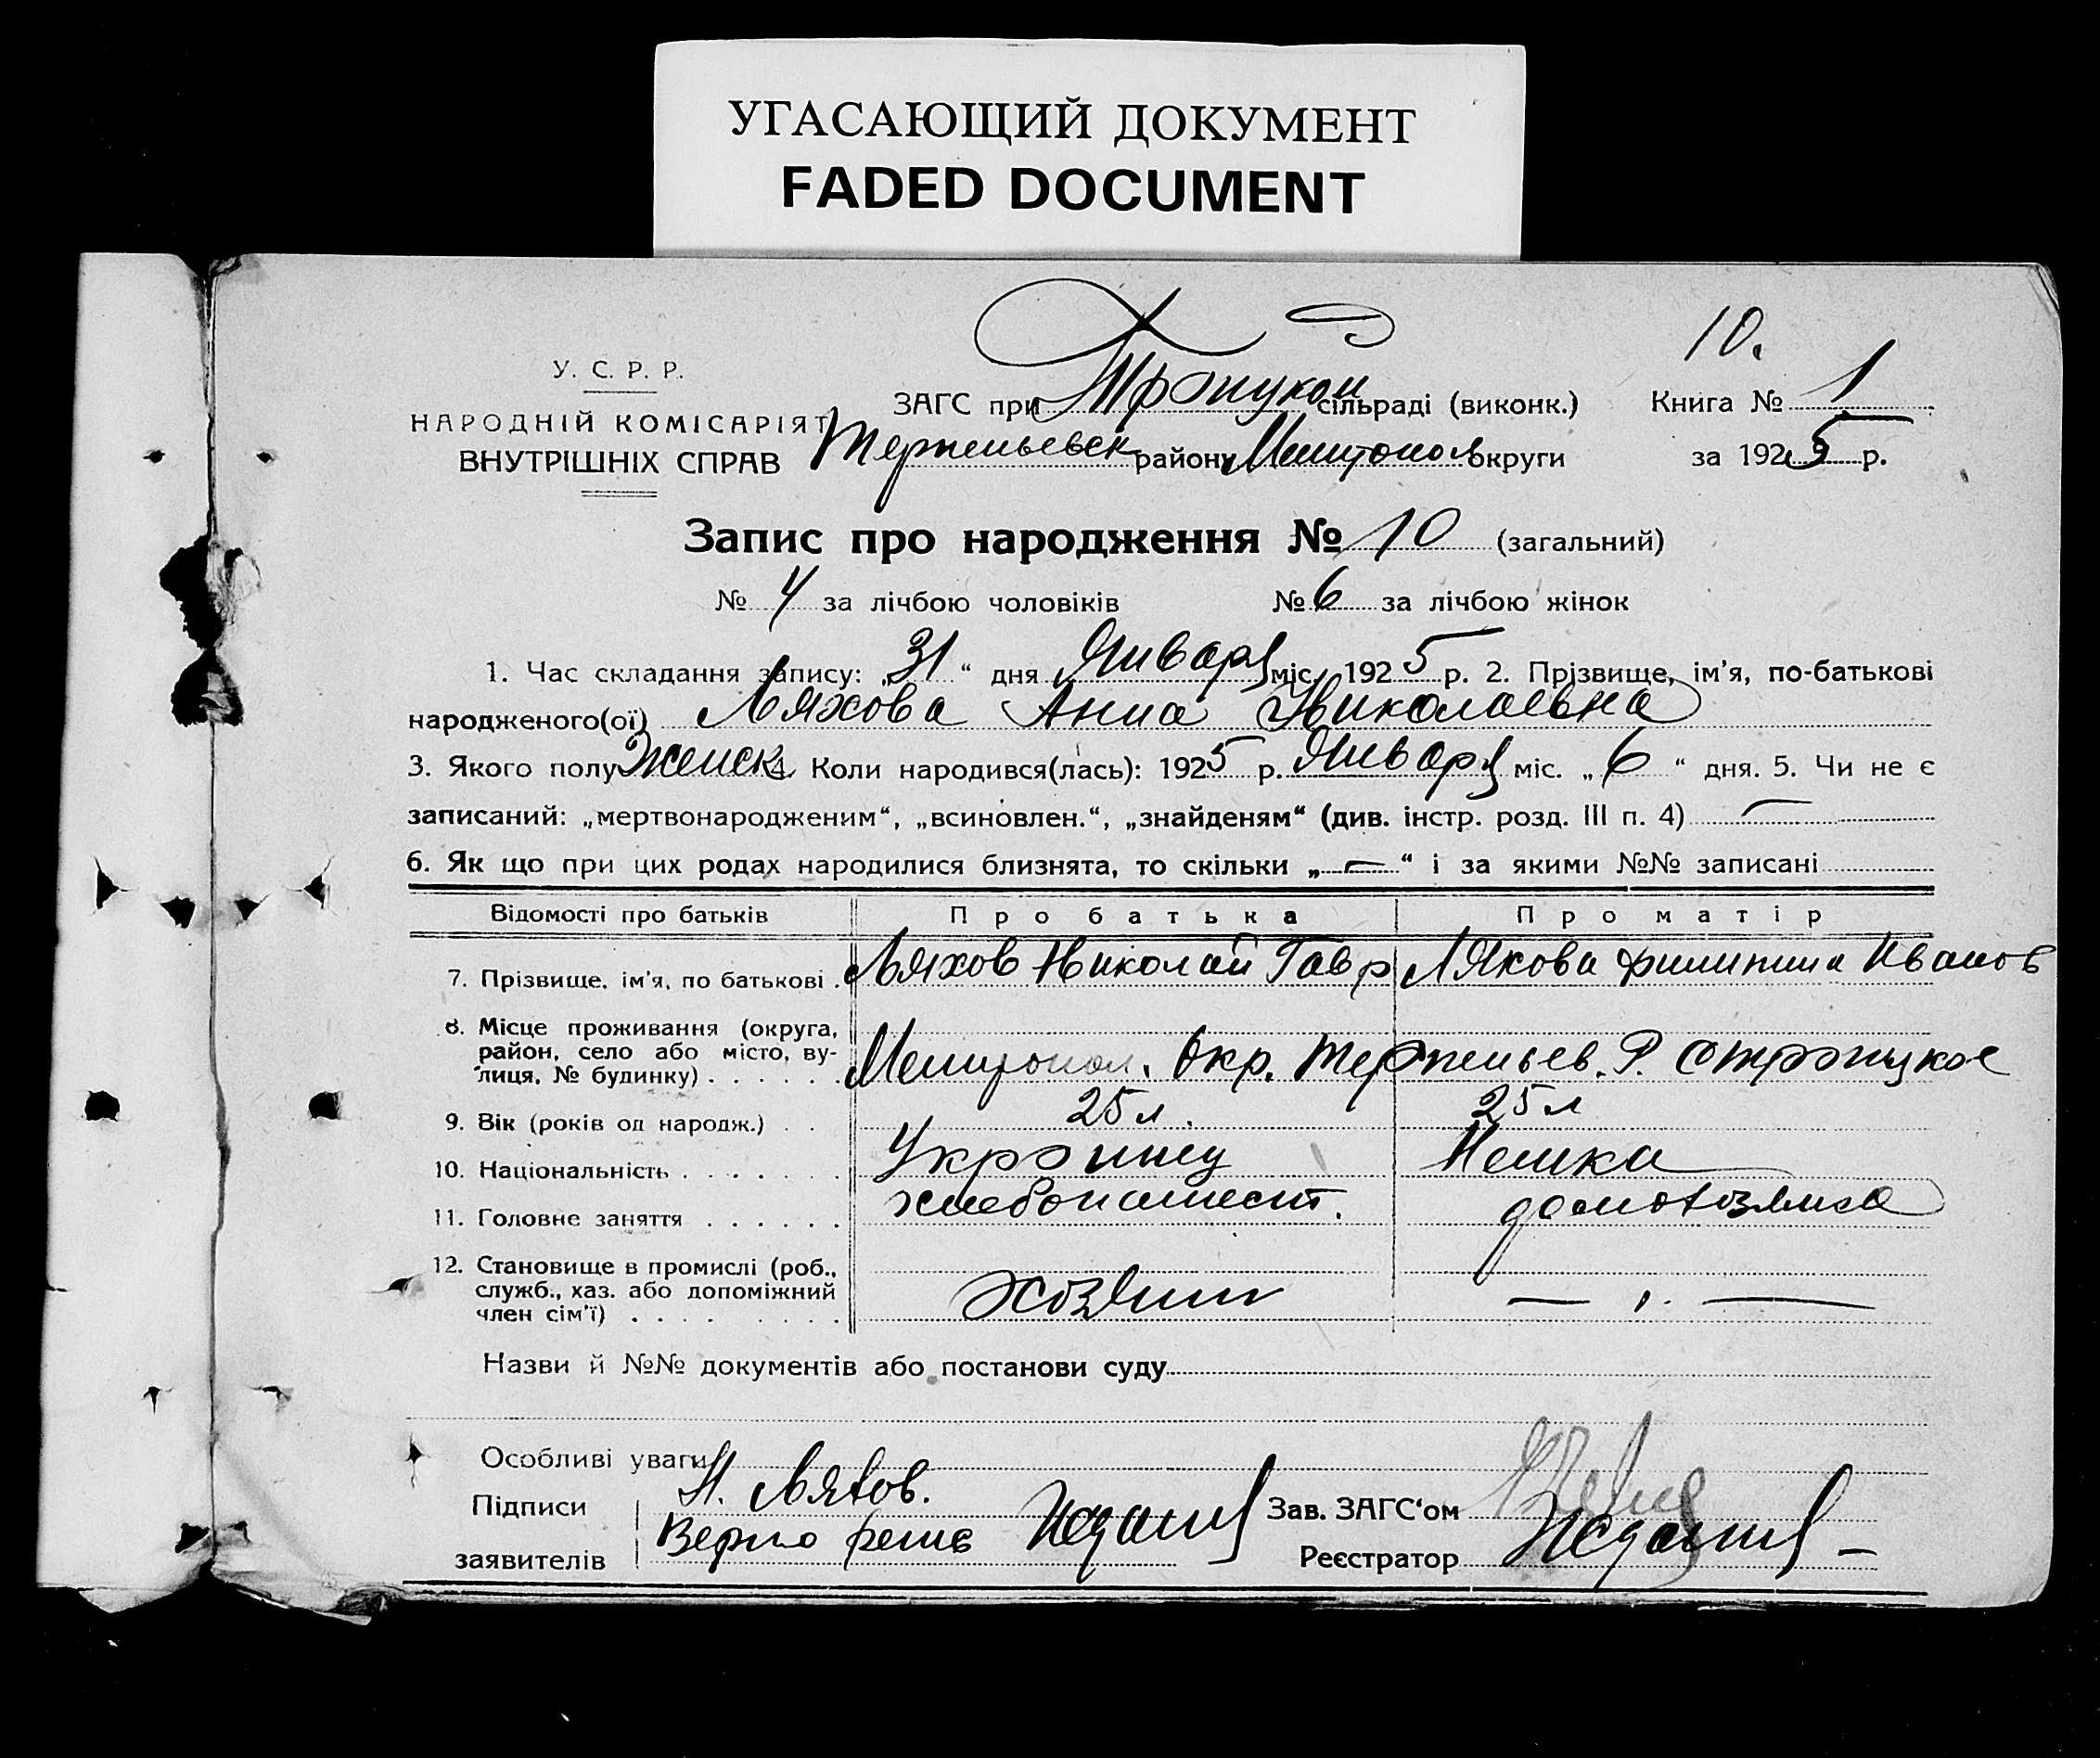 УГАСАЮЩИЙ ДОКУМЕНТ
FADED DOCUMENT
10.
У. С. Р. Р.
НАРОДНІЙ КОМІСАРІЯТ
ВНУТРІШНІХ СПРАВ
ЗАГС при Троицком сільраді (виконк.)
Терпеньевск району Мелитопол округи
Книга № 1
за 1925 р.
Запис про народження № 10 (загальний)
№ 4 за лічбою чоловіків № 6 за лічбою жінок
1. Час складання запису: „31“ дня Января міс. 1925 р. 2. Прізвище, ім'я, по-батькові
народженого(ої) Ляхова Анна Николаевна
3. Якого полу Женск 4. Коли народився(лась): 1925 р. Января міс. „6“ дня. 5. Чи не є
записаний: „мертвонародженим“, „всиновлен.“, „знайденям“ (див. інстр. розд. III п. 4) —
6. Як що при цих родах народилися близнята, то скільки „—“ і за якими №№ записані
Відомості про батьків Про батька Про матір
7. Прізвище, ім'я, по батькові . Ляхов Николай Гавр Ляхова Филипина Иванов
8. Місце проживання (округа,
район, село або місто, ву-
лиця, № будинку) . . . . . . Мелитопол. Окр. Терпеньев. Р. с Троицкое
9. Вік (років од народж.) . . 25 л. 25 л
10. Національність . . . . . . Украинец Немка
11. Головне заняття . . . . . . хлебопашест. домохозяйка
12. Становище в промислі (роб.,
служб., хаз. або допоміжний
член сім'ї) . . . . . . . . Хозяин — „ —
Назви й №№ документів або постанови суду
Особливі уваги
Підписи Н. Ляхов. Зав. ЗАГС‘ом
заявителів Верно Реєстратор